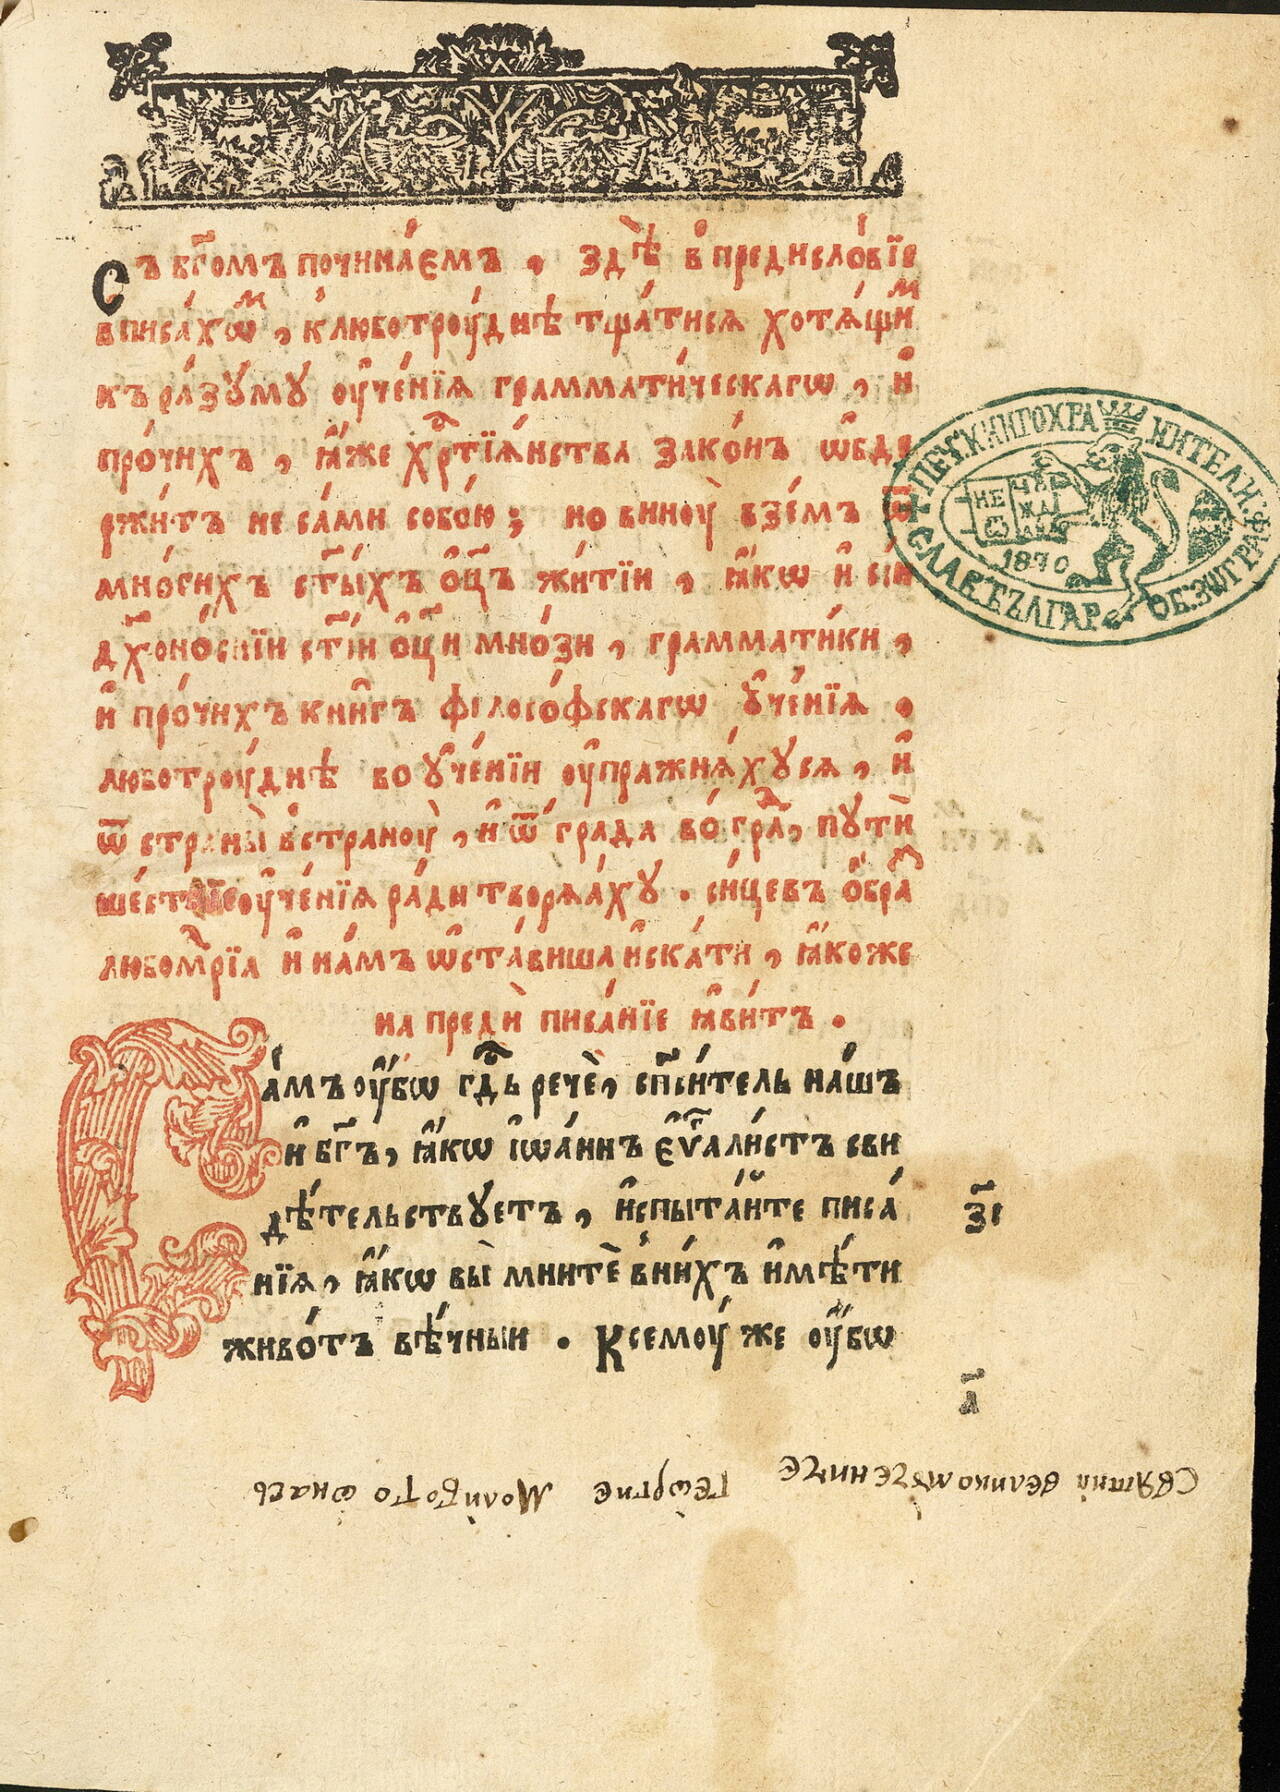 Съ бг҃омъ почина́емъ , здѣ̀ в̾преднсло́вїе
вписа́хѡⷨ , к̾люботрꙋ́днѣ тща́тися хотѧ́щиⷨ
къ ра́зꙋмꙋ оу҆че́нїѧ грамматі́ческагѡ , и҆
про́чихъ , ꙗ҆́же хрⷭ҇тїѧ́нства зако́нъ ѡ҆бде
ржи́тъ не са́ми собо́ю ; но винꙋ̀ взе́мъ ѿ
мно́гихъ ст҃ы́хъ ѻ҆ц҃ъ житїи , ꙗ҆́кѡ и҆ сїи
дх҃оно́снїи ст҃і́и ѻ҆ц҃и мно́зи , грамматі́ки ,
и҆ про́чихъ кни҆гъ фїлосо́фскагѡ ᲂу҆че́нїѧ ,
люботрꙋ́днѣ во ᲂу҆че́нїи оу҆пражнѧ́хꙋсѧ , и҆
ѿ страны̀ в̾странꙋ̀ , и҆ ѿ гра́да во́ граⷣ , пꙋтѝ
ше́ствїе оу҆че́нїѧ ра́ди творѧа́хꙋ . си́цевъ ѻ҆́браⷥ
любомⷣрїѧ и҆ на́мъ ѡ҆ста́виша и҆ска́ти , ꙗ҆́коже
на предѝ писа́нїе ꙗ҆ви́тъ .
Са́мъ оу҆́бѡ гдⷭ҇ь речѐ , сп҃си́тель на́шъ
и҆ бг҃ъ , ꙗ҆́кѡ і҆ѡа́ннъ є҆ѵⷢ҇али́стъ сви
дѣ́тельствꙋетъ , и҆спыта́йте писа́
нїѧ , ꙗ҆́кѡ вы̀ мнитѐ в̾ни́хъ и҆мѣ́ти
живо́тъ вѣ́чныи . Ксемꙋ́ же оу҆́бѡ
з҃і
а҃
ПЕЧ. КНИГОХРАНИТЕЛН.
СЛАВ. БЪЛГАР. ОБ. ЗѠГРАФ.
1870
Свѧтии великомꙋчениче Геѡргие Моли Бога ѡ насъ